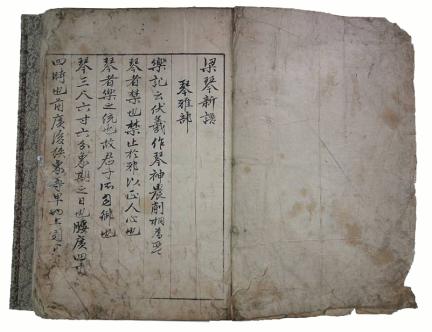 梁琴新譜
琴雅部
樂記云伏羲作琴神農削桐爲琴
琴者禁也禁止於邪以正人心也
琴者樂之統也故君子所御也
琴三尺六寸六分象期之日也腰廣四寸
四時也前廣後狹象尊卑也上圓